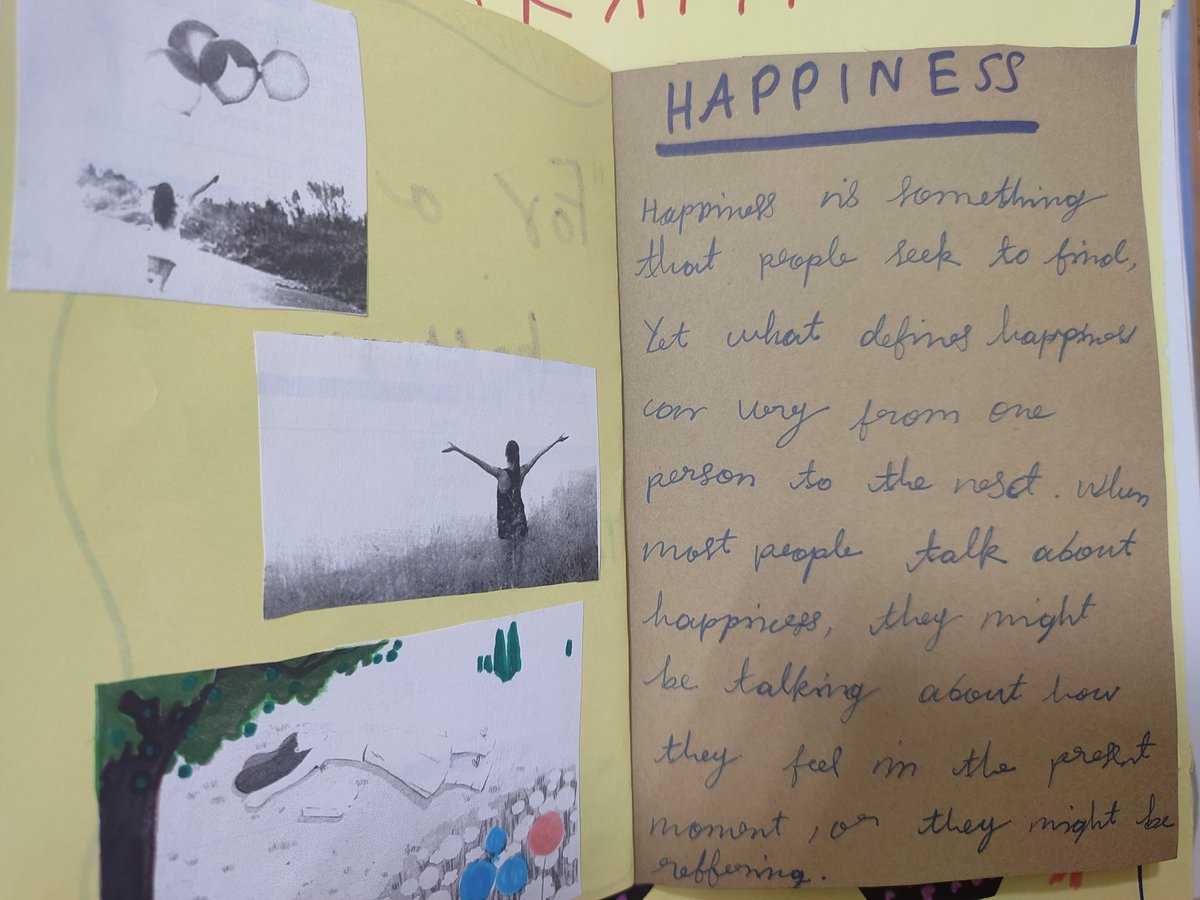 HAPPINESS
Happiness is something
that people seek to find,
Yet what defines happiness
can very from one
person to the next. When
most people talk about
happiness, they might
be talking about how
they feel in the present
moment, or they might be
reffering.
"For a